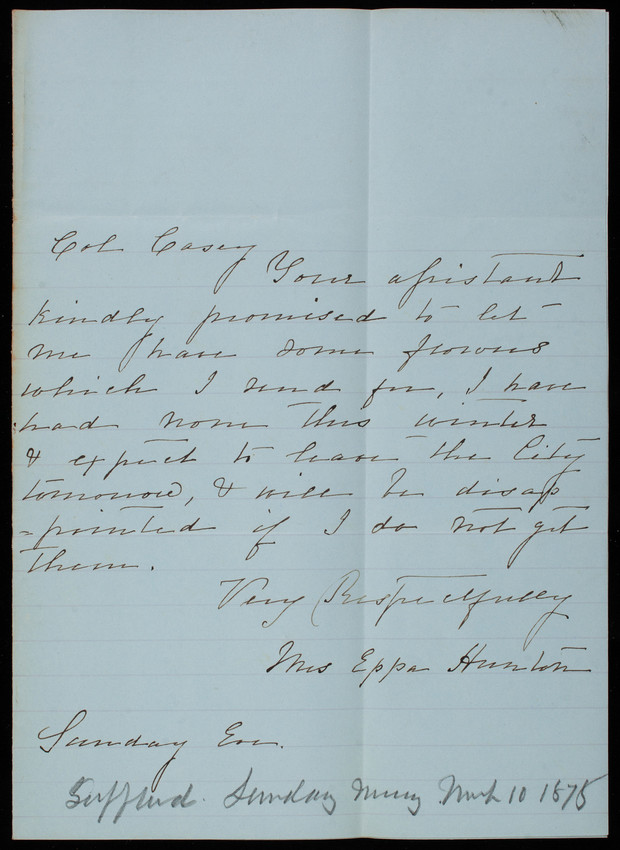 Col Casey
Your assistant
kindly promised to let
me have some flowers
which I send for, I have
had none this winter
& expect to leave the City
tomorrow, & will be disap
=pointed if I do not get
them.
Very Respectfully
Mrs Eppa Hunton
Sunday Eve.
Sunday 10 1878